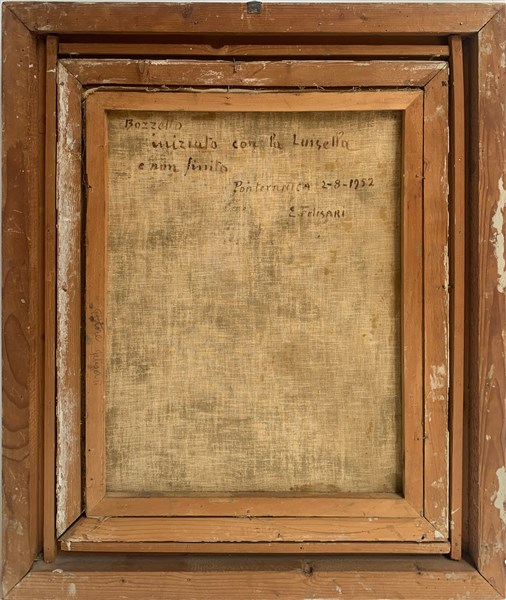 Bozzetto
iniziato con la Luisella
e non finito
Ponteranica 2-8-1952
E. Felisari